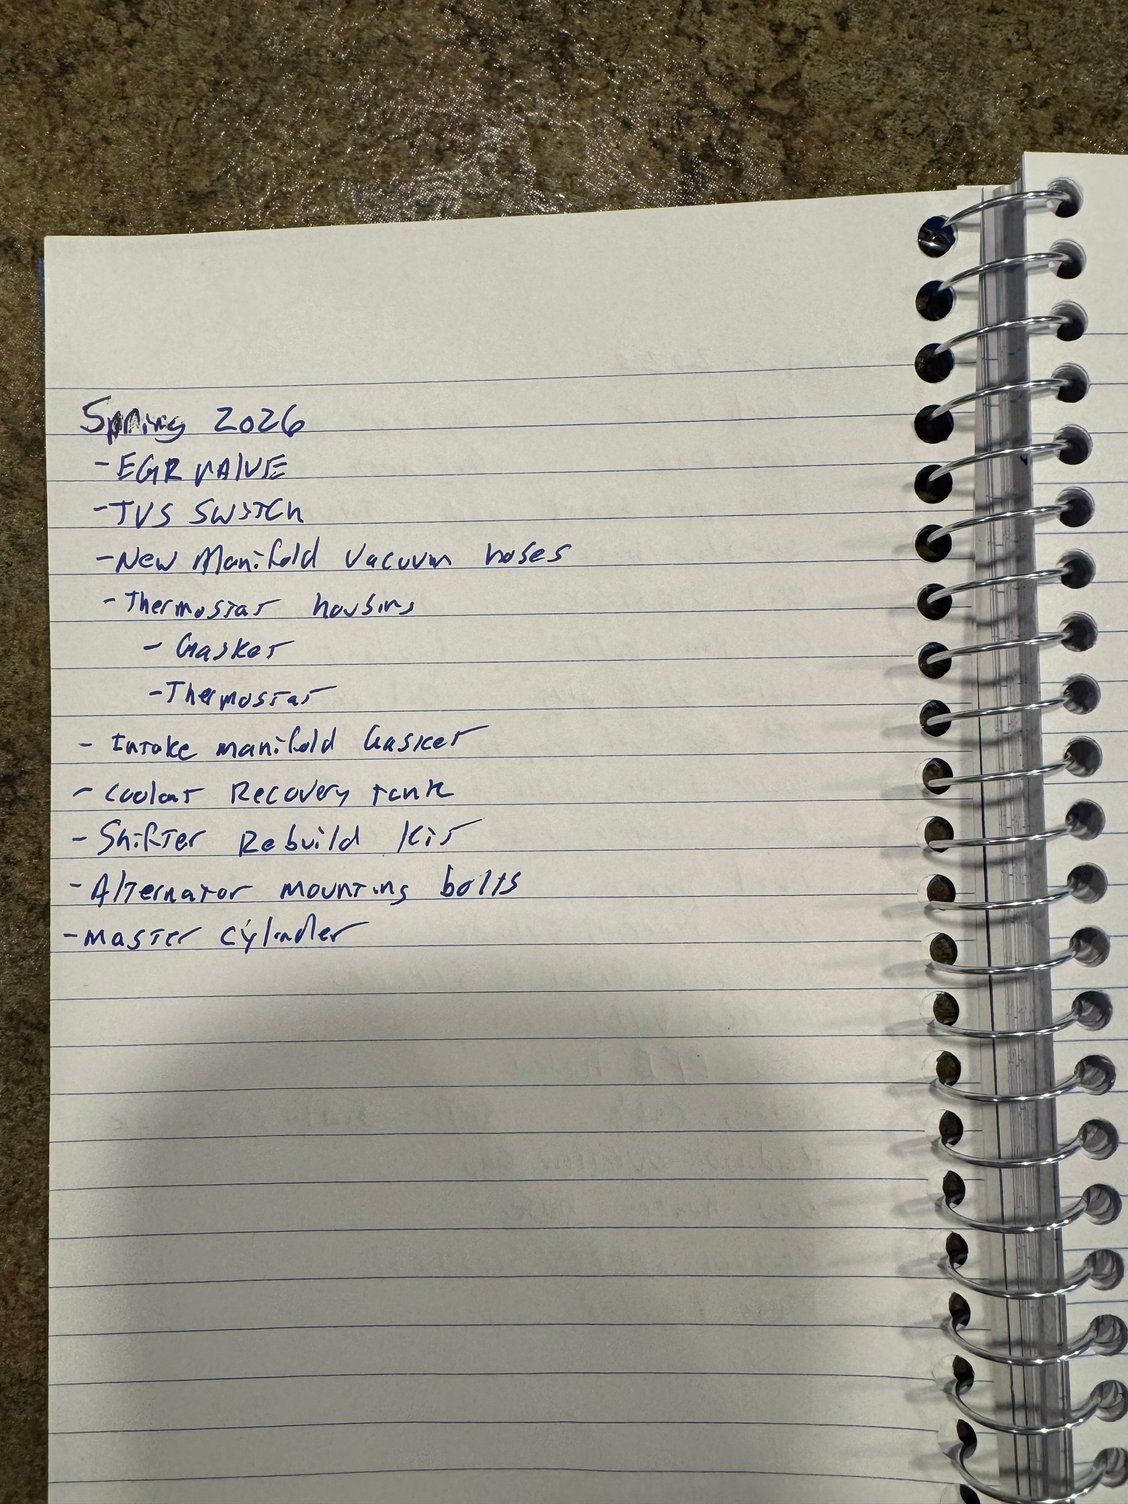 Spring 2026
- EGR VAlVE
- TVS SWITCh
- New Manifold Vacuum hoses
- Thermostat housing
- Gasket
- Thermostat
- Intake manifold Gasket
- Coolant Recovery tank
- Shifter Rebuild Kit
- Alternator mounting bolts
- Master cylinder